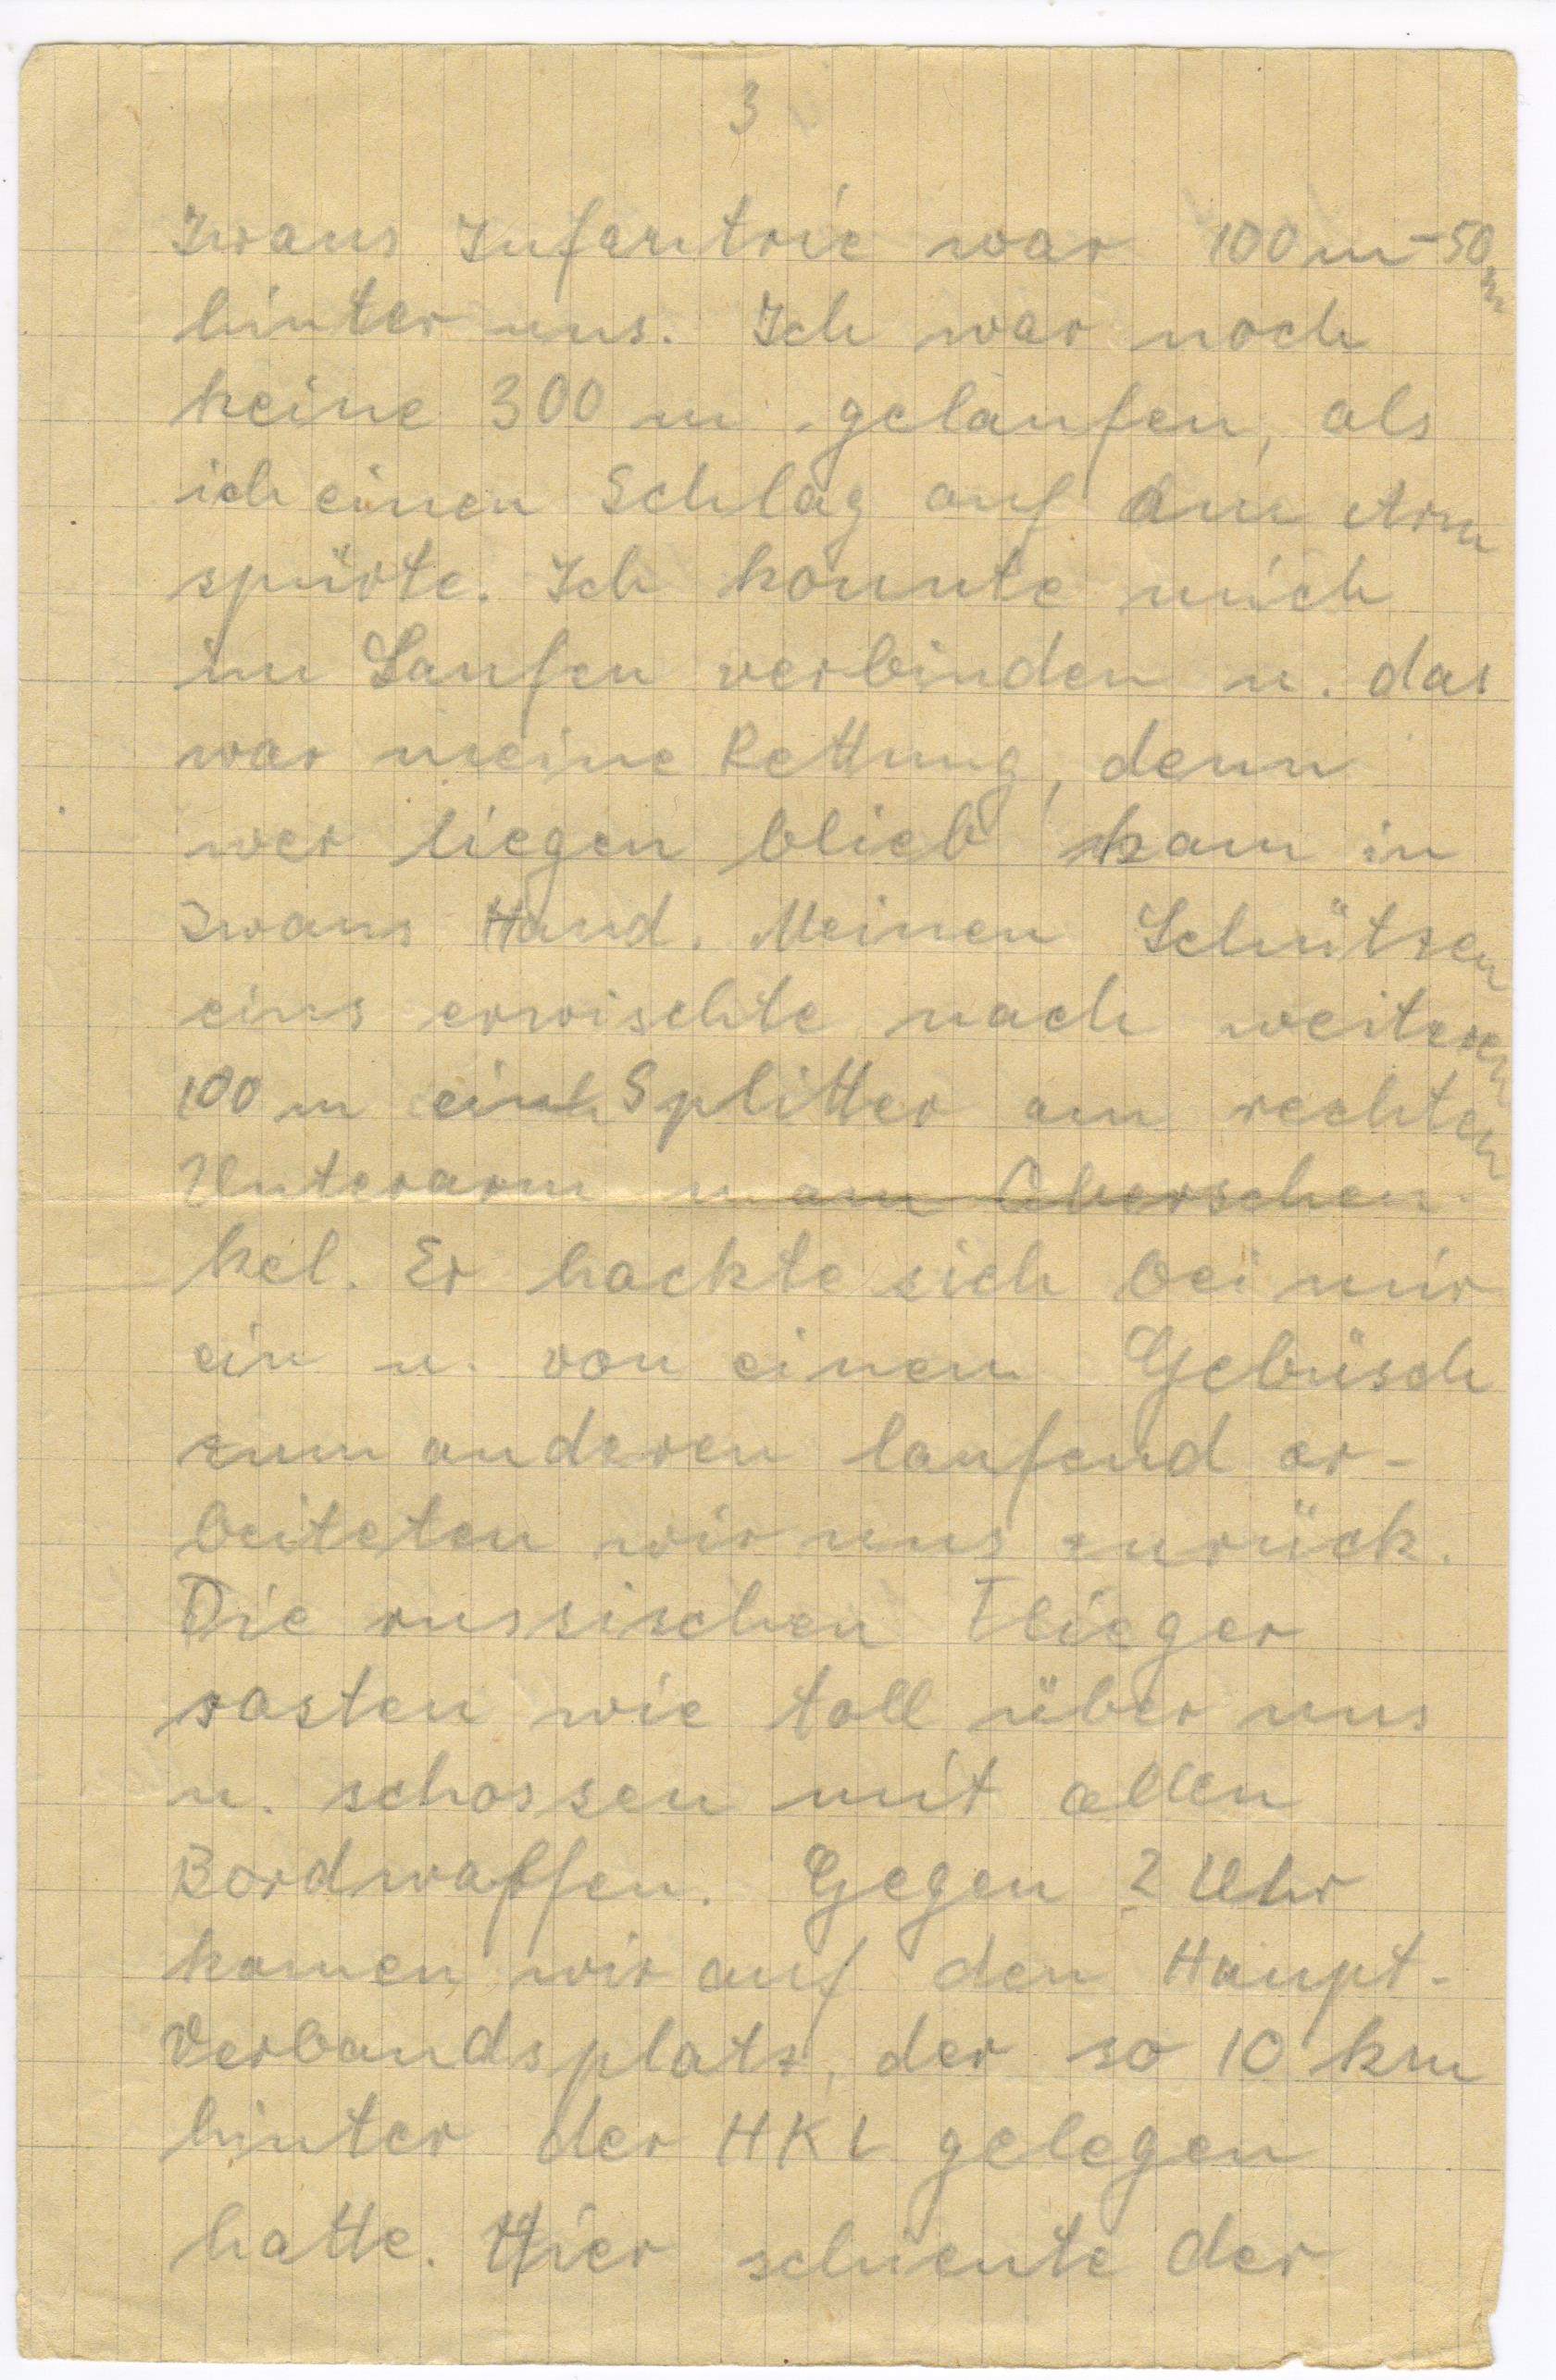 3
Iwans Infantrie war 100 m - 50 m
hinter uns. Ich war noch
keine 300 m gelaufen, als
ich einen Schlag auf den Arm
spürte. Ich konnte mich
im Laufen verbinden u. das
war meine Rettung, denn
wer liegen blieb kam in
Iwans Hand. Meinen Schützen
eins erwischte nach weiteren
100 m ein Splitter am rechten
Unterarm u am Oberschen-
kel. Er hackte sich bei mir
ein u. von einem Gebüsch
zum anderen laufend ar-
beiteten wir uns zurück.
Die russischen Flieger
rasten wie toll über uns
u. schossen mit allen
Bordwaffen. Gegen 2 Uhr
kamen wir auf den Haupt-
Verbandsplatz, der so 10 km
hinter der HKL gelegen
hatte. Hier schiente der